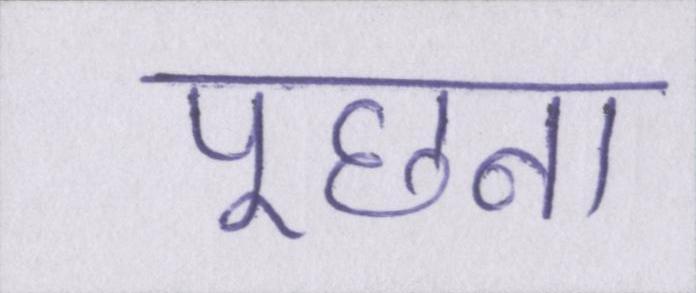 पूछना